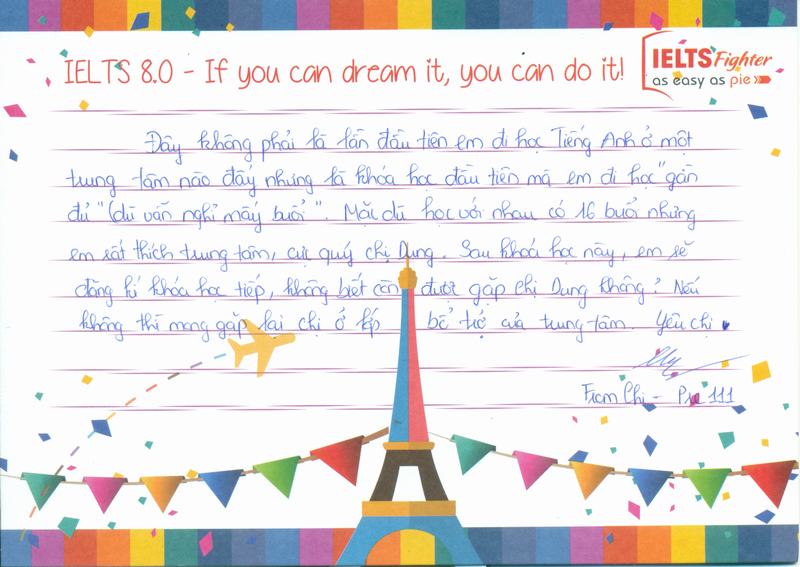 IELTS 8.0 - If you can dream it, you can do it!
IELTS Fighter
as easy as pie
Đây không phải là lần đầu tiên em đi học Tiếng Anh ở một
trung tâm nào đấy nhưng là khóa học đầu tiên mà em đi học "gần
đủ" (dù vẫn nghỉ mấy buổi". Mặc dù học với nhau có 16 buổi nhưng
em rất thích trung tâm, cực quý chị Dung. Sau khoá học này, em sẽ
đăng kí khóa học tiếp, không biết còn được gặp chị Dung không? Nếu
không thì mong gặp lại chị ở lớp bổ trợ của trung tâm. Yêu chị
From Chi - Pre 111